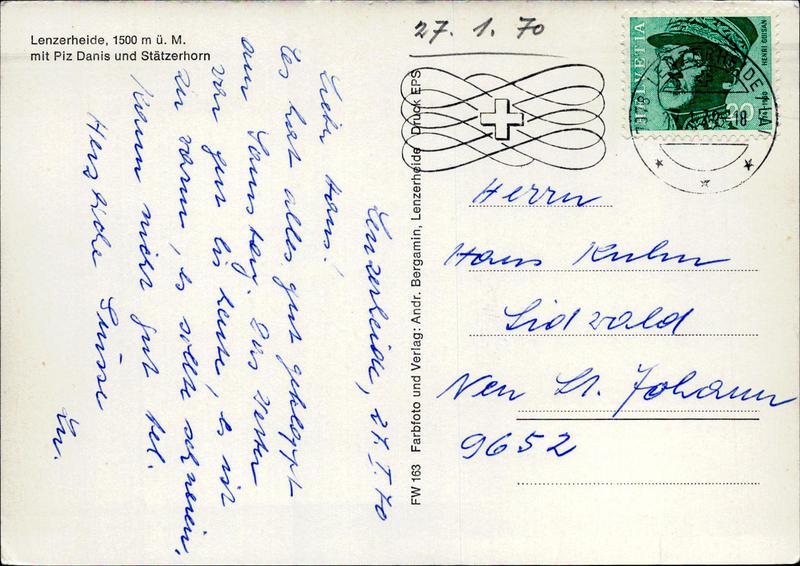 Lenzerheide, 1500 m ü. M.
mit Piz Danis und Stätzerhorn
Lenzerheide, 27. I. 70
Lieber Hans!
Es hat alles gut geklappt
am Samstag. Das Wetter
war gut bis heute, es ist
zu warm, es sollte schneien,
Kann nicht gut tel.
Herzliche Grüsse
FW 163 Farbfoto und Verlag: Andr. Bergamin, Lenzerheide Druck EPS
27. 1. 70
HELVETIA
HENRI GUISAN
1874-1960
20
LENZERHEIDE
Herrn
Hans Kuhn
Sidwald
Neu St. Johann
9652